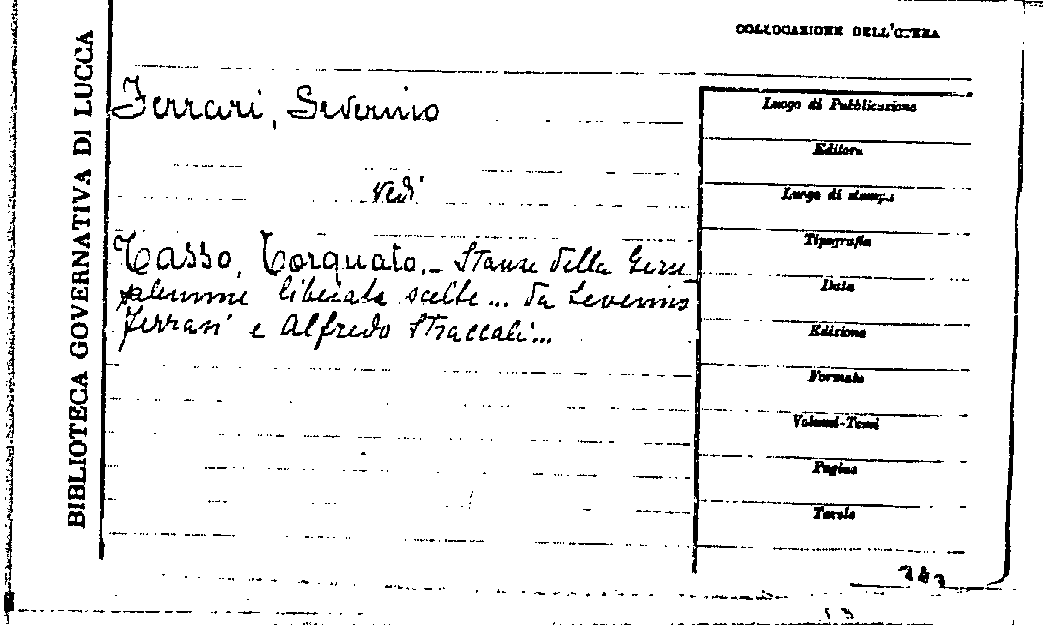 BIBLIOTECA GOVERNATIVA DI LUCCA
COLLOCAZIONE DELL'OPERA
Ferrari, Severino
vedi
Tasso, Torquato. - Stanze della Geru
salemme liberata scelte... da Severino
Ferrari e Alfredo Straccali...
Luogo di Pubblicazione
Editore
Luogo di stampa
Tipografia
Data
Edizione
Formato
Volumi-Tomi
Pagine
Tavole